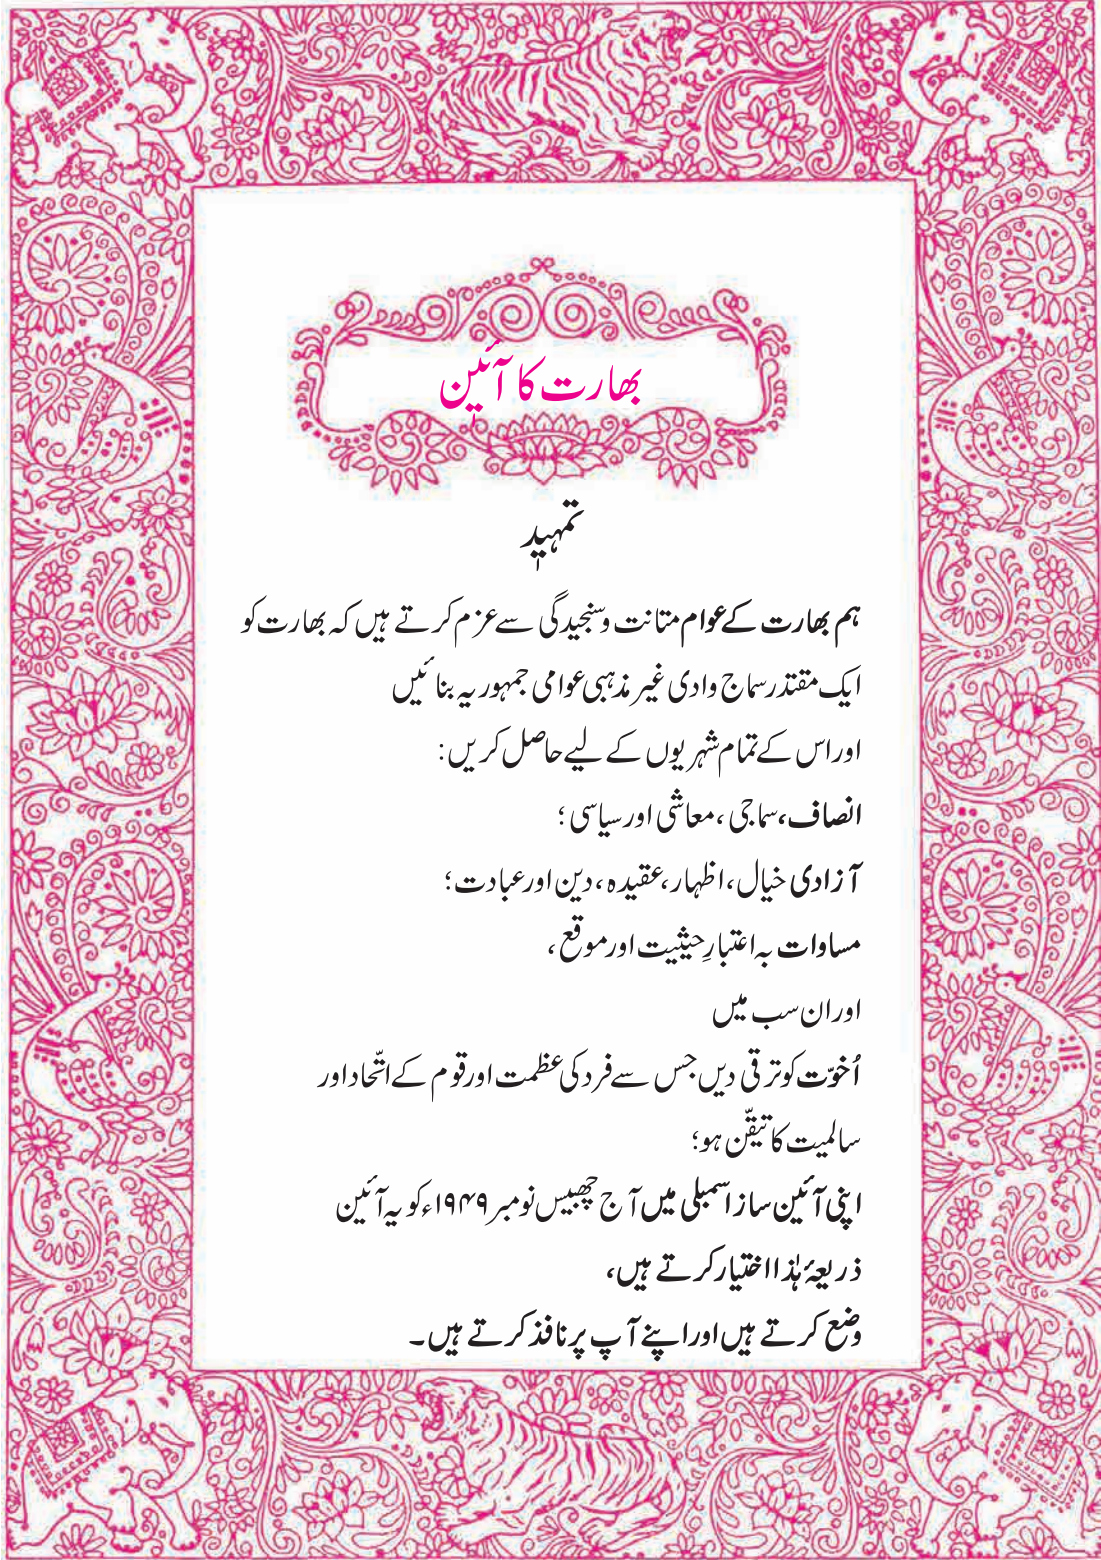 بھارت کا آئین
تمہید
ہم بھارت کے عوام متانت و سنجیدگی سے عزم کرتے ہیں کہ بھارت کو
ایک مقتدر سماج وادی غیر مذہبی عوامی جمہوریہ بنائیں
اور اس کے تمام شہریوں کے لیے حاصل کریں:
انصاف، سماجی، معاشی اور سیاسی؛
آزادی خیال، اظہار، عقیدہ، دین اور عبادت؛
مساوات بہ اعتبارِ حیثیت اور موقع،
اور ان سب میں
اُخوّت کو ترقی دیں جس سے فرد کی عظمت اور قوم کے اتّحاد اور
سالمیت کا تیقّن ہو؛
اپنی آئین ساز اسمبلی میں آج چھبیس نومبر ۱۹۴۹ء کو یہ آئین
ذریعۂ ہٰذا اختیار کرتے ہیں،
وضع کرتے ہیں اور اپنے آپ پر نافذ کرتے ہیں۔